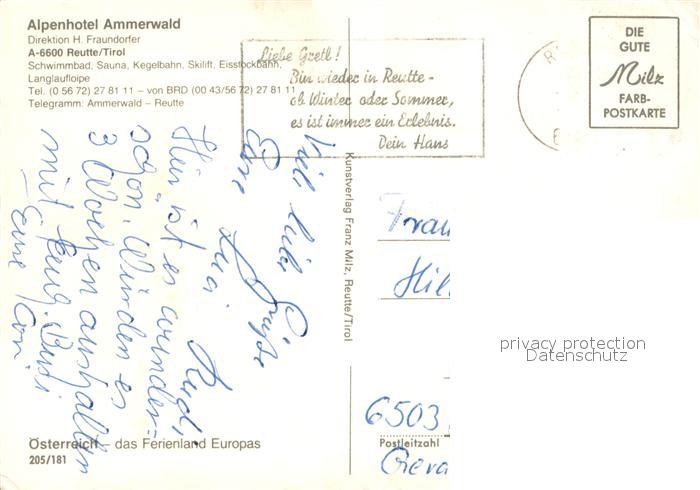 Alpenhotel Ammerwald
Direktion H. Fraundorfer
A-6600 Reutte/Tirol
Schwimmbad, Sauna, Kegelbahn, Skilift, Eisstockbahn,
Langlaufloipe
Tel. (0 56 72) 27 81 11 – von BRD (00 43/56 72) 27 81 11
Telegramm: Ammerwald – Reutte
Liebe Gretl!
Bin wieder in Reutte -
ob Winter oder Sommer,
es ist immer ein Erlebnis.
Dein Hans
DIE
GUTE
Milz
FARB-
POSTKARTE
Viele liebe Grüße
Hier ist es wunder=
schön. Würden es
3 Wochen aushalten
mit
Eure
Kunstverlag Franz Milz, Reutte/Tirol
Frau
Hil
6503
Postleitzahl
Gera
privacy protection
Datenschutz
Österreich – das Ferienland Europas
205/181